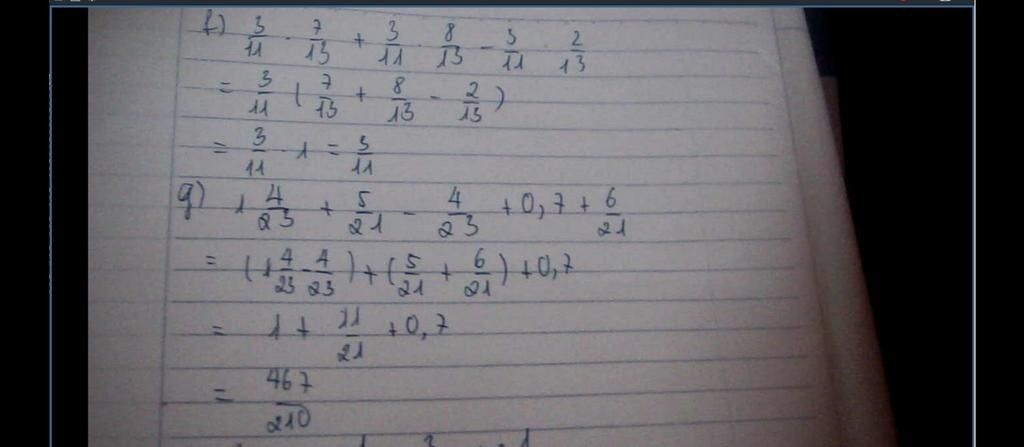 f) 3/11 · 7/13 + 3/11 · 8/13 - 3/11 · 2/13
= 3/11 ( 7/13 + 8/13 - 2/13 )
= 3/11 · 1 = 3/11
g) 1 4/23 + 5/21 - 4/23 + 0,7 + 6/21
= (1 4/23 - 4/23 ) + ( 5/21 + 6/21 ) + 0,7
= 1 + 11/21 + 0,7
= 467/210